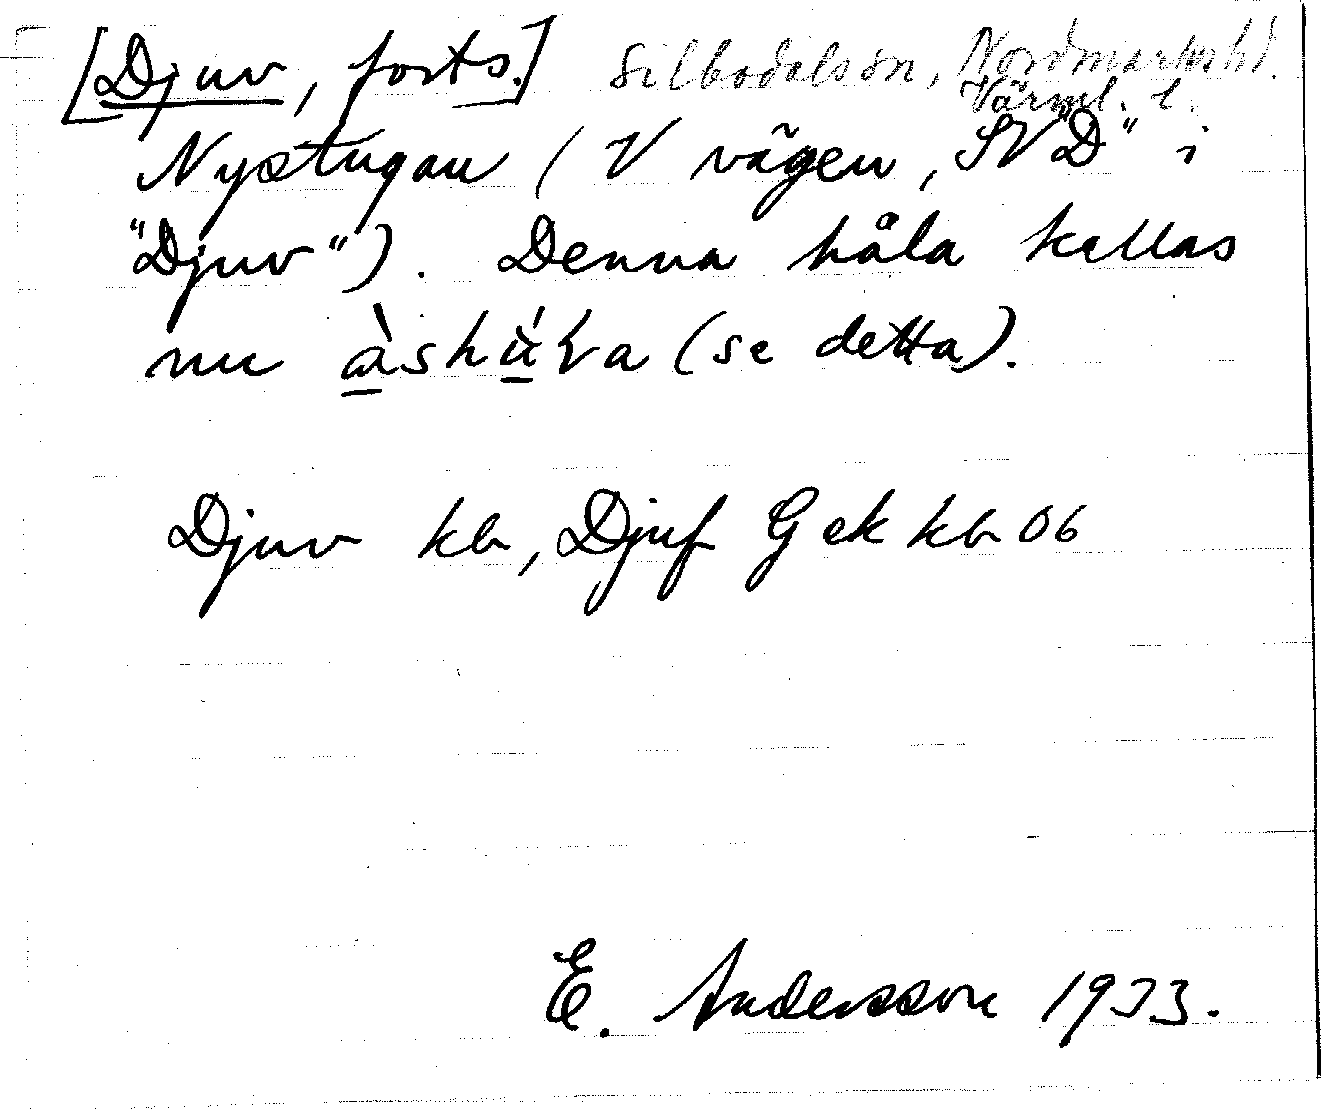 [Djuv, forts.] Silbodalssn, Nordmarks hd.
Värml. l.
Nystugan (V vägen, SV "D" i
"Djuv"). Denna håla kallas
nu (se detta).
Djuv kb, Djuf G ek kb 06
E. Andersson 1933.